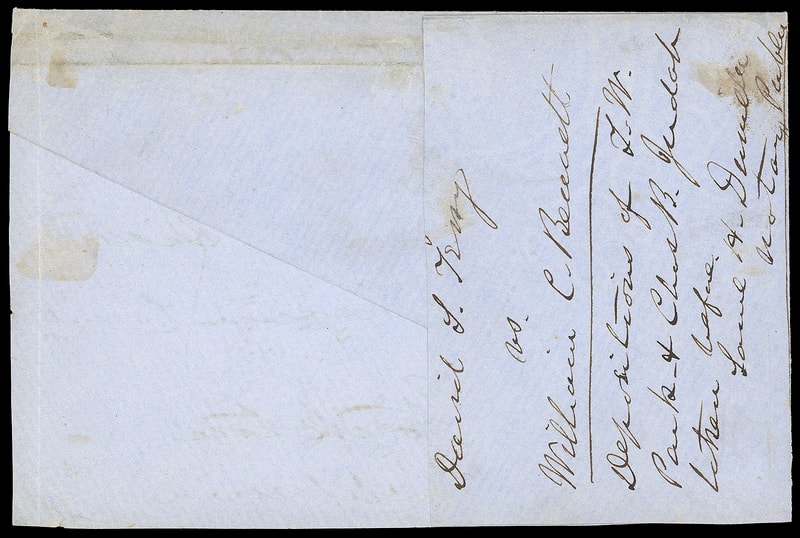 David S. Terry
vs.
William C. Bennett
Depositions of T. W.
Park & Chas B.
taken before
H
Notary Public